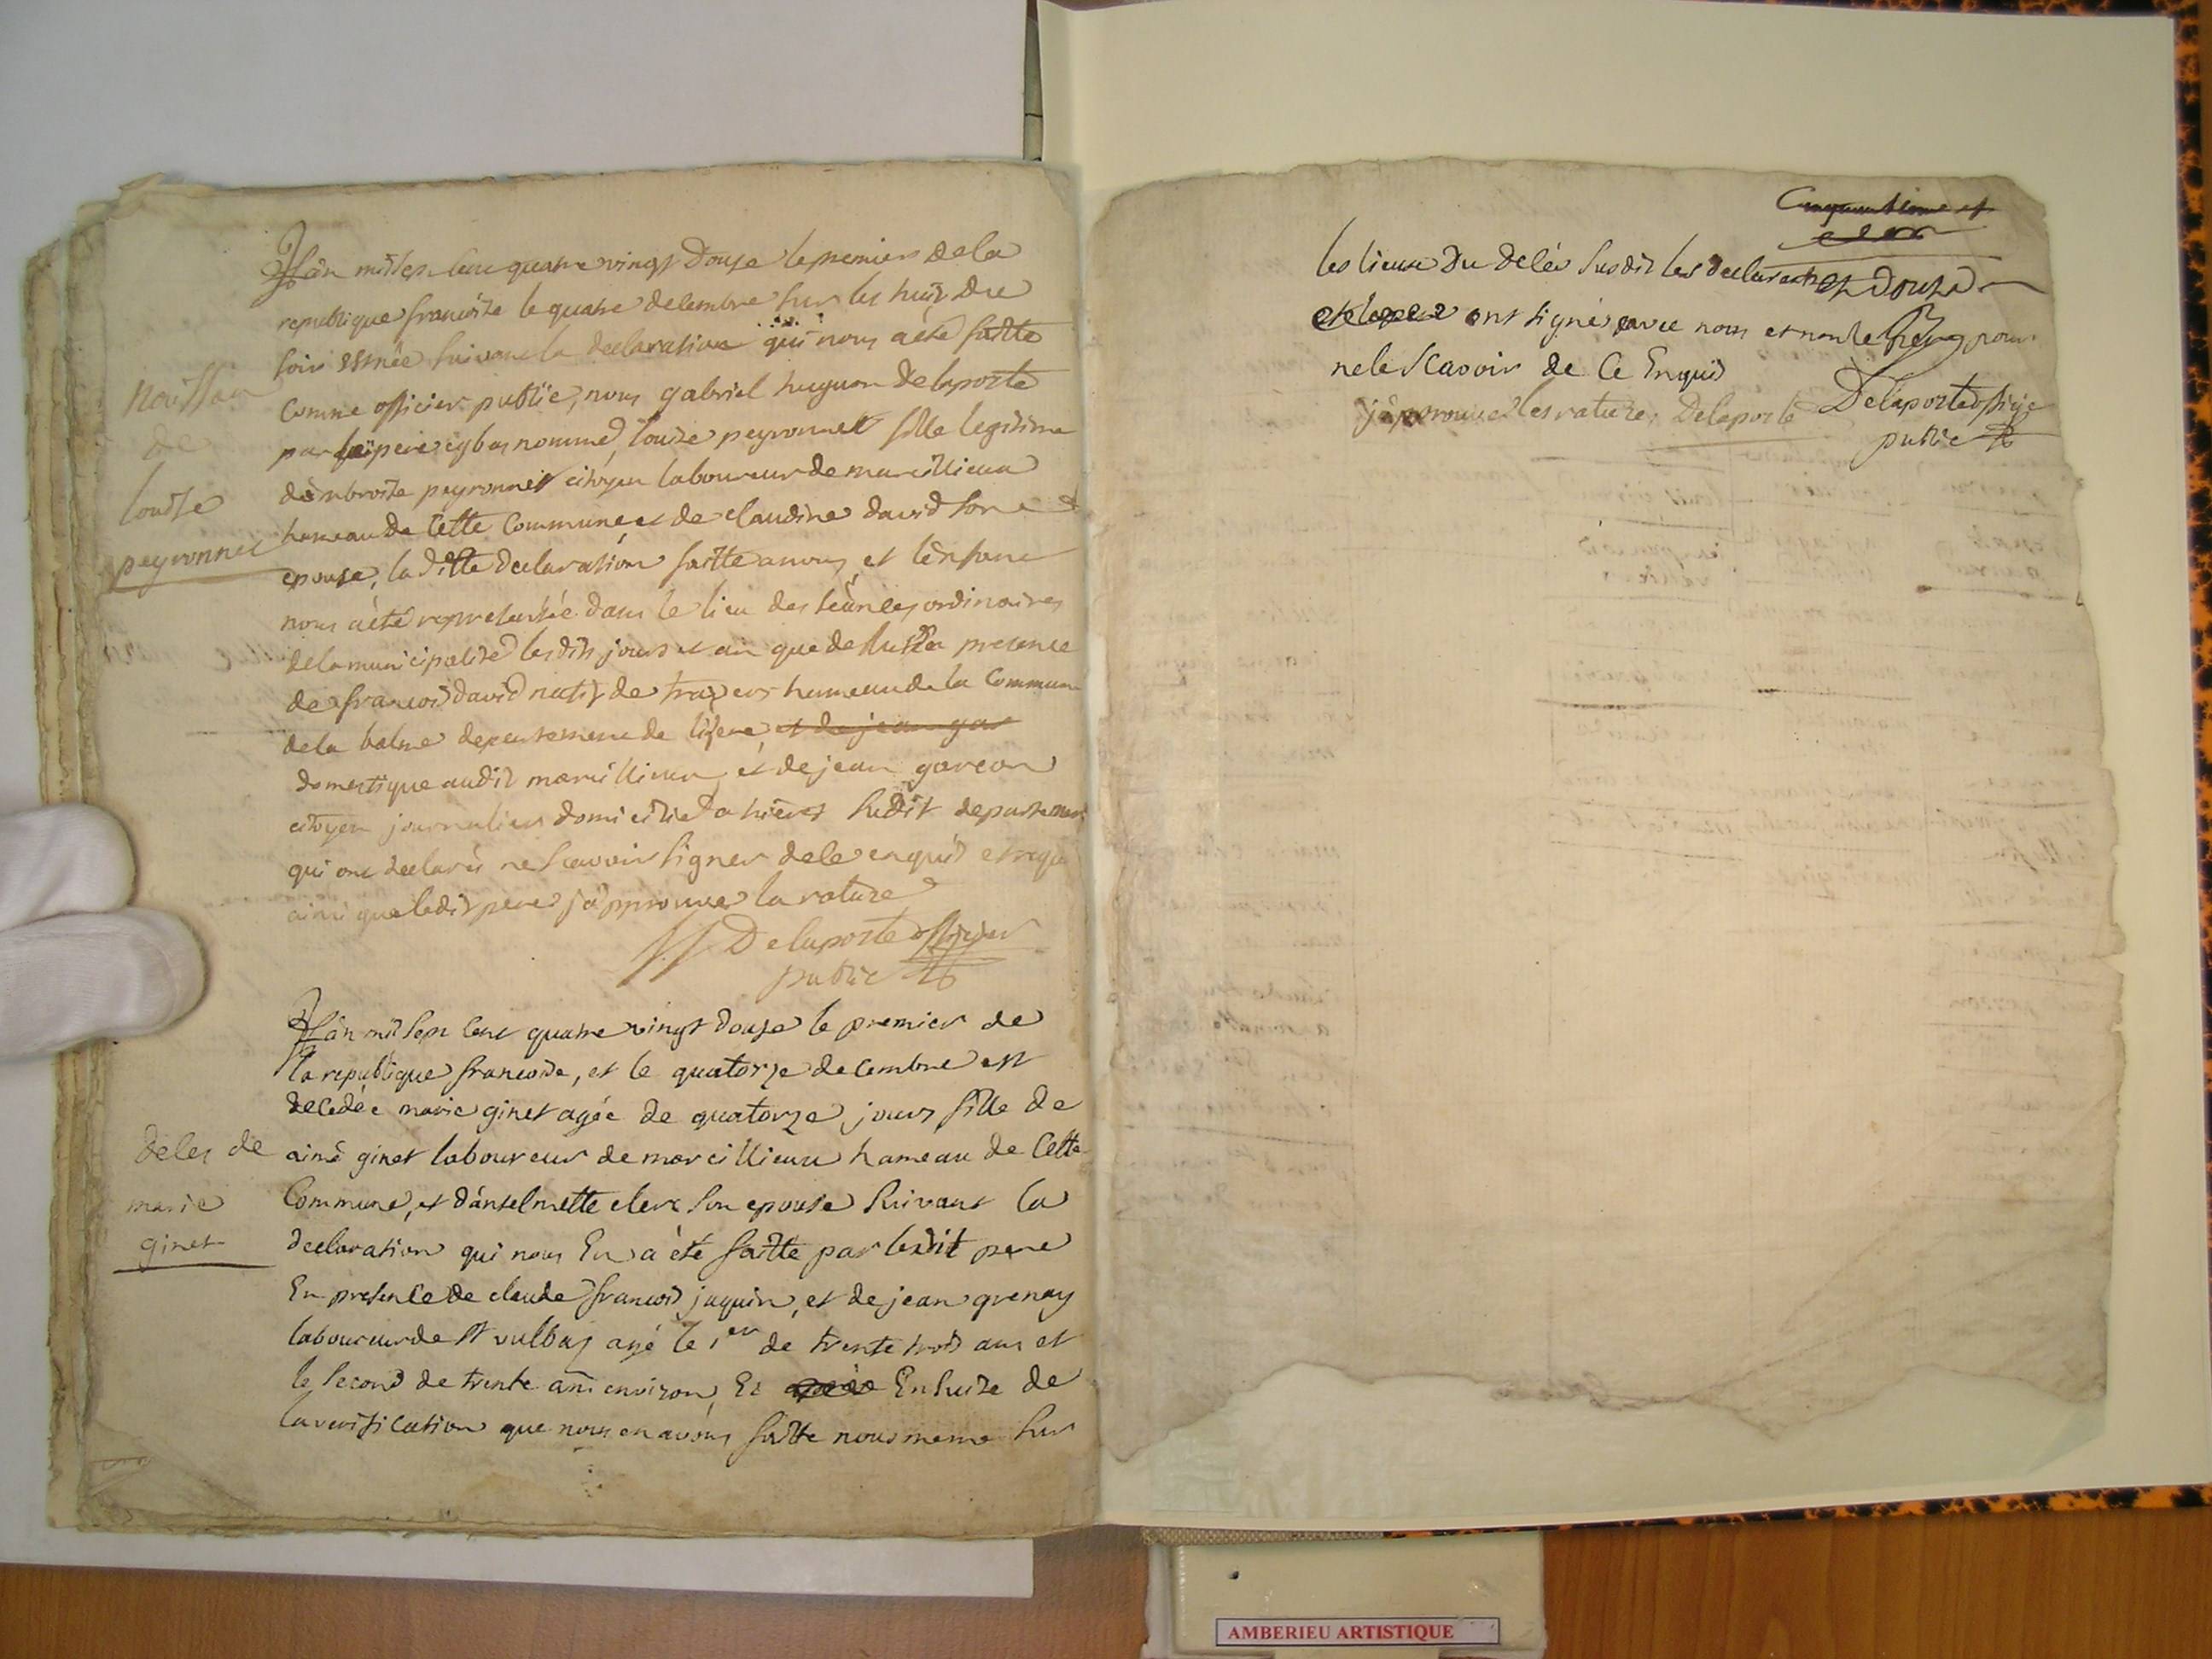 Lán mil sept cent quatre vingt douze le premier de la
republique francoise le quatre decembre sur les huit du
soir est née suivant la declaration qui nous a été faitte
comme officier public, nous gabriel huguon delaporte
par le pere cy bas nommé, louise peyronnet fille legitime
dámbroise peyronnet citoyen laboureur de marcillieux
hameau de cette commune et de claudine david son
epouse, la ditte declaration faitte a nous, et lénfant
nous a été representée dans le lieu des séances ordinaires
de la municipalité lesdits jours et an que dessus en presence
de francois david natif de hameau de la commune
de la balme departement de lisere, et de jean gar
domestique audit marcillieux, et de jean garcon
citoyen journalier domicilié a hieres susdit departement
qui ont declarés ne scavoir signer de ce enquis et requis
ainsi que ledit pere jápprouve la rature
Delaporte officier
public
naissance
de
louise
peyronnet
Lán mil sept cent quatre vingt douze le premier de
la republique francoise, et le quatorze decembre est
decedée marie ginet agée de quatorze jours fille de
aimé ginet laboureur de marcillieux hameau de cette
commune, et dánselmette clerc son epouse suivant la
declaration qui nous en a été faitte par ledit pere
En presence de claude francois jaquin, et de jean grenay
laboureur de st vulbas agé le 1er de trente trois ans et
le second de trente ans environ, Et Ensuite de
la verification que nous en avons faitte nous meme sur
deces de
marie
ginet
les lieux du decés susdit les declarants et douze
ont signés avec nous et non le pour
ne le scavoir de ce Enquis
jápprouve les ratures Delaporte
Delaporte officier
public
AMBERIEU ARTISTIQUE